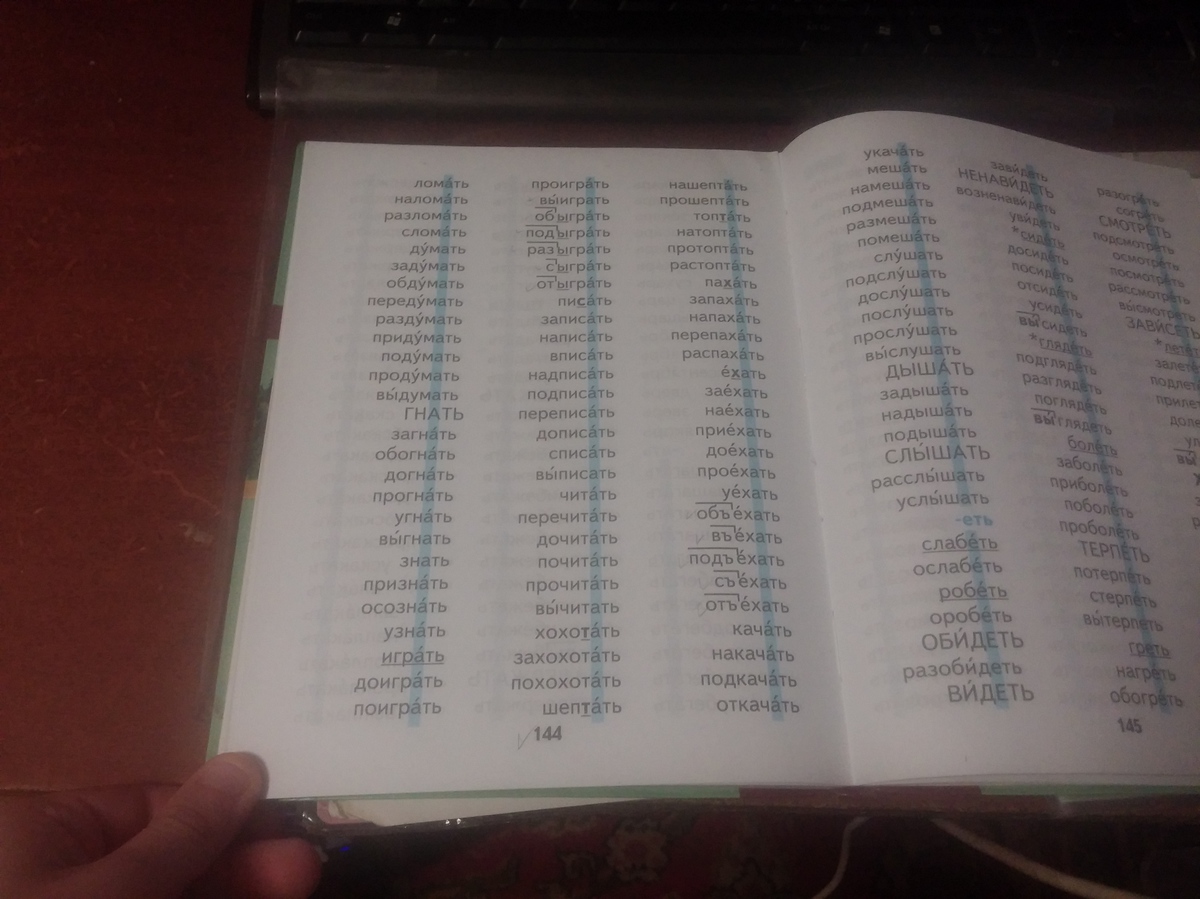 лома́ть
налома́ть
разлома́ть
слома́ть
ду́мать
заду́мать
обду́мать
переду́мать
разду́мать
приду́мать
поду́мать
проду́мать
вы́думать
ГНАТЬ
загна́ть
обогна́ть
догна́ть
прогна́ть
угна́ть
вы́гнать
знать
призна́ть
осозна́ть
узна́ть
игра́ть
доигра́ть
поигра́ть
проигра́ть
вы́играть
обыгра́ть
подыгра́ть
разыгра́ть
сыгра́ть
отыгра́ть
писа́ть
записа́ть
написа́ть
вписа́ть
надписа́ть
подписа́ть
переписа́ть
дописа́ть
списа́ть
вы́писать
чита́ть
перечита́ть
дочита́ть
почита́ть
прочита́ть
вы́читать
хохота́ть
захохота́ть
похохота́ть
шепта́ть
нашепта́ть
прошепта́ть
топта́ть
натопта́ть
протопта́ть
растопта́ть
паха́ть
запаха́ть
напаха́ть
перепаха́ть
распаха́ть
е́хать
зае́хать
нае́хать
прие́хать
дое́хать
прое́хать
уе́хать
объе́хать
въе́хать
подъе́хать
съе́хать
отъе́хать
кача́ть
накача́ть
подкача́ть
откача́ть
144
укача́ть
меша́ть
намеша́ть
подмеша́ть
размеша́ть
помеша́ть
слу́шать
подслу́шать
дослу́шать
послу́шать
прослу́шать
вы́слушать
ДЫША́ТЬ
задыша́ть
надыша́ть
подыша́ть
СЛЫ́ШАТЬ
расслы́шать
услы́шать
-еть
слабе́ть
ослабе́ть
робе́ть
оробе́ть
ОБИ́ДЕТЬ
разоби́деть
ВИ́ДЕТЬ
зави́деть
НЕНАВИ́ДЕТЬ
возненави́деть
уви́деть
*сиде́ть
досиде́ть
посиде́ть
отсиде́ть
усиде́ть
вы́сидеть
*гляде́ть
подгляде́ть
разгляде́ть
погляде́ть
вы́глядеть
боле́ть
заболе́ть
приболе́ть
поболе́ть
проболе́ть
ТЕРПЕ́ТЬ
потерпе́ть
стерпе́ть
вы́терпеть
греть
нагре́ть
обогре́ть
разогре́ть
согре́ть
СМОТРЕ́ТЬ
подсмотре́ть
осмотре́ть
посмотре́ть
рассмотре́ть
вы́смотреть
145